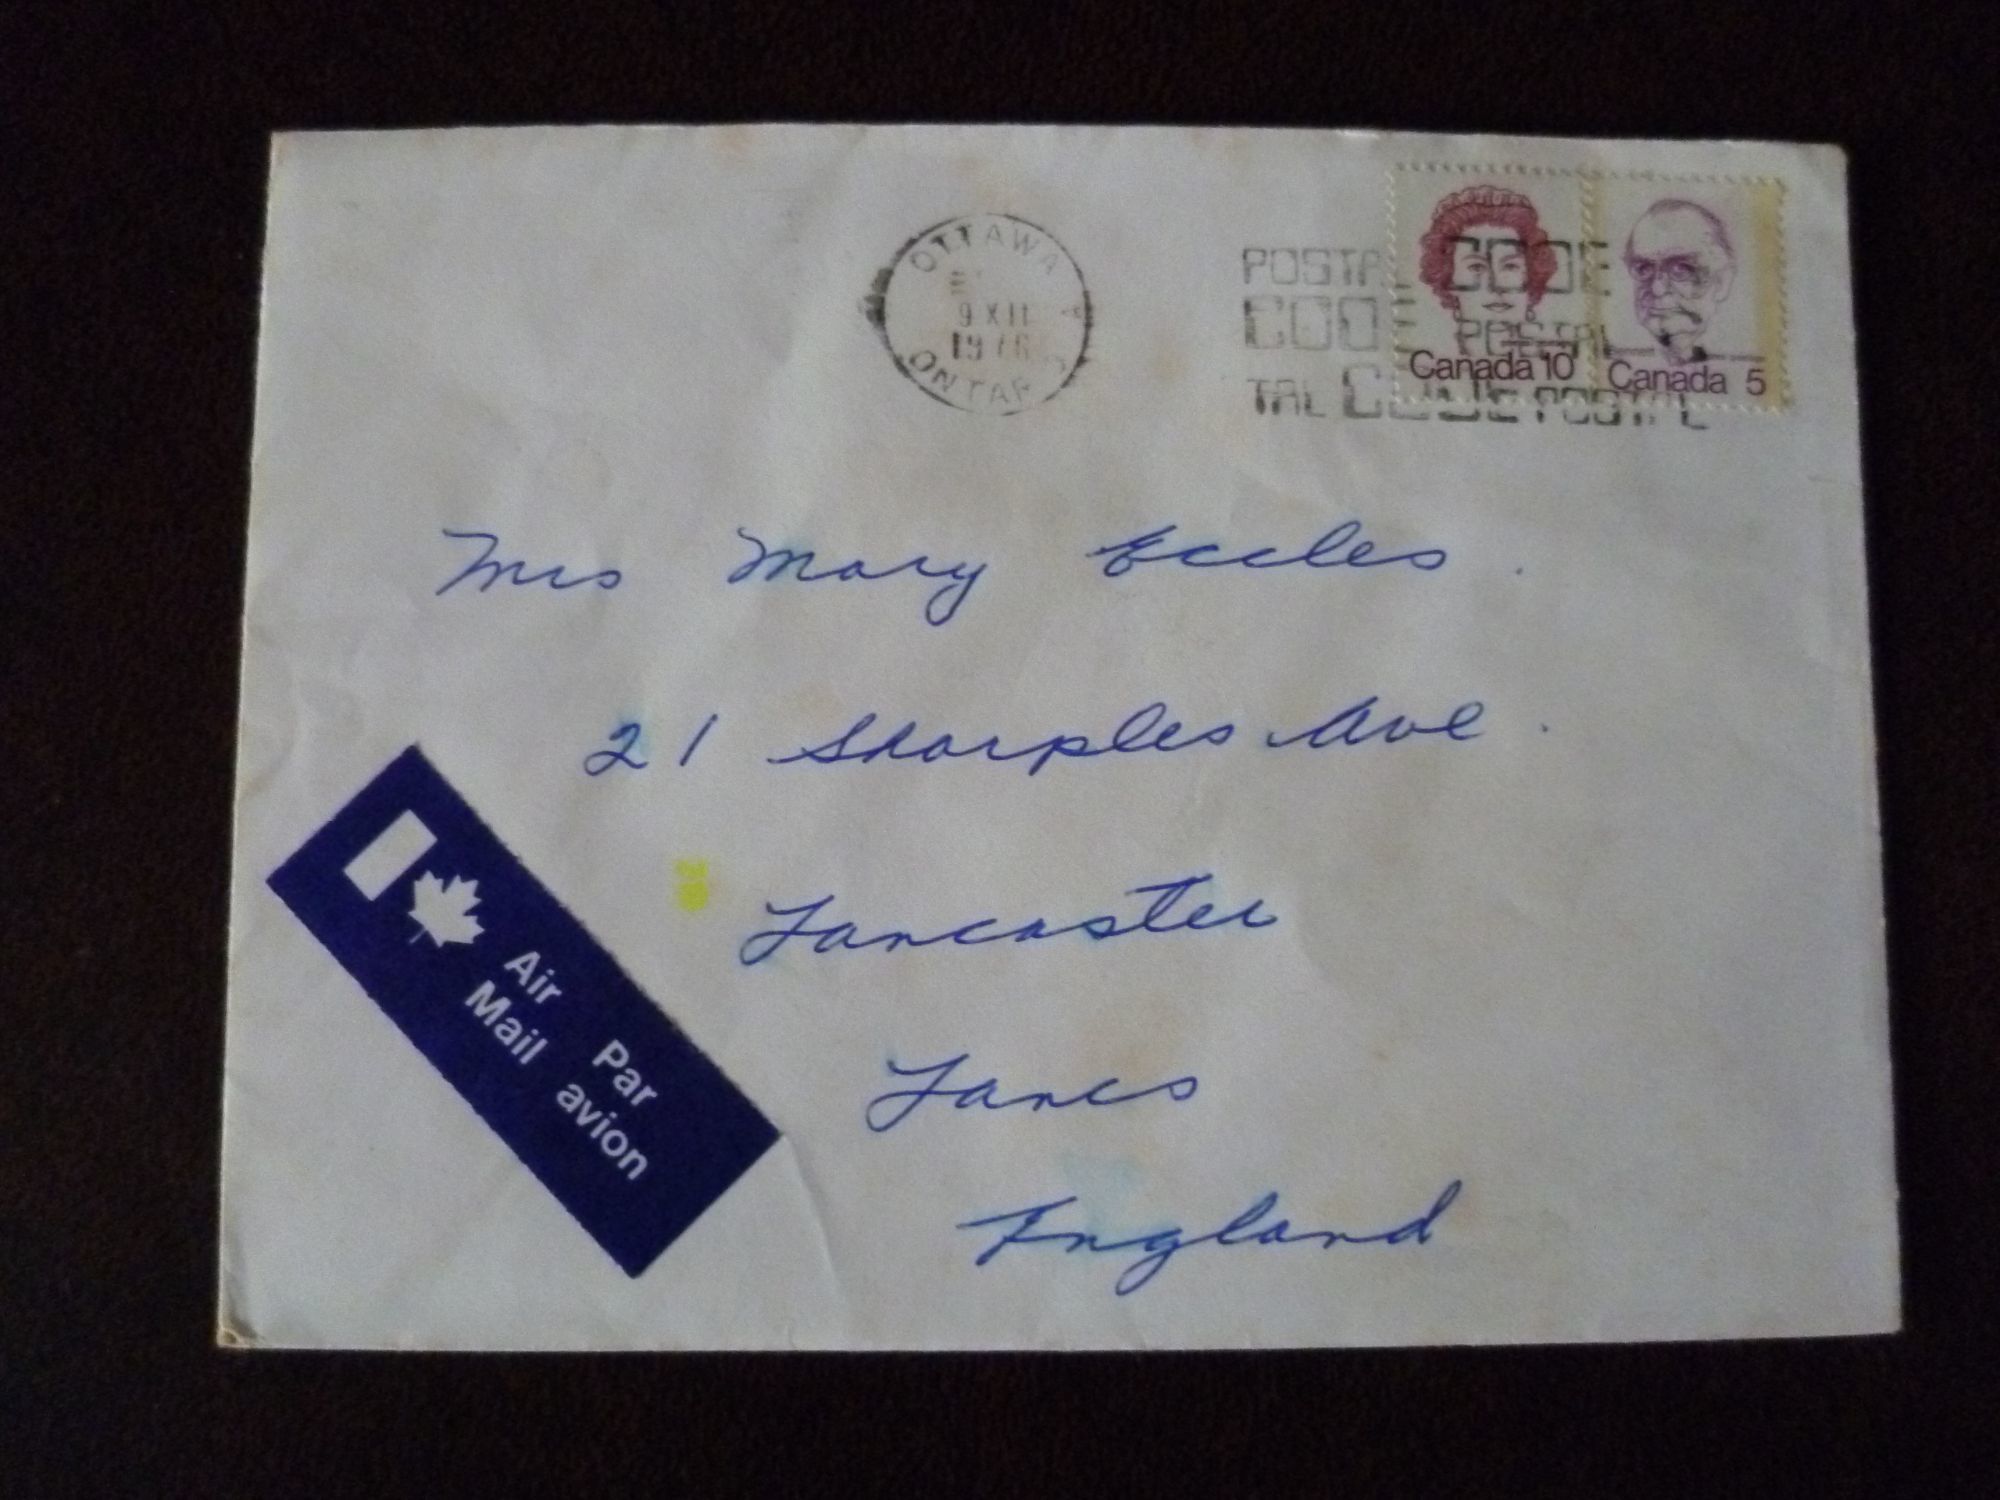 OTTAWA
9 XII
1976
ONTAR
POSTA CODE
CODE POSTAL
TAL CODE POSTAL
Canada 10
Canada 5
Mrs Mary Eccles.
21 Sharples Ave.
Lancaster
Lancs
England
Air Mail
Par avion